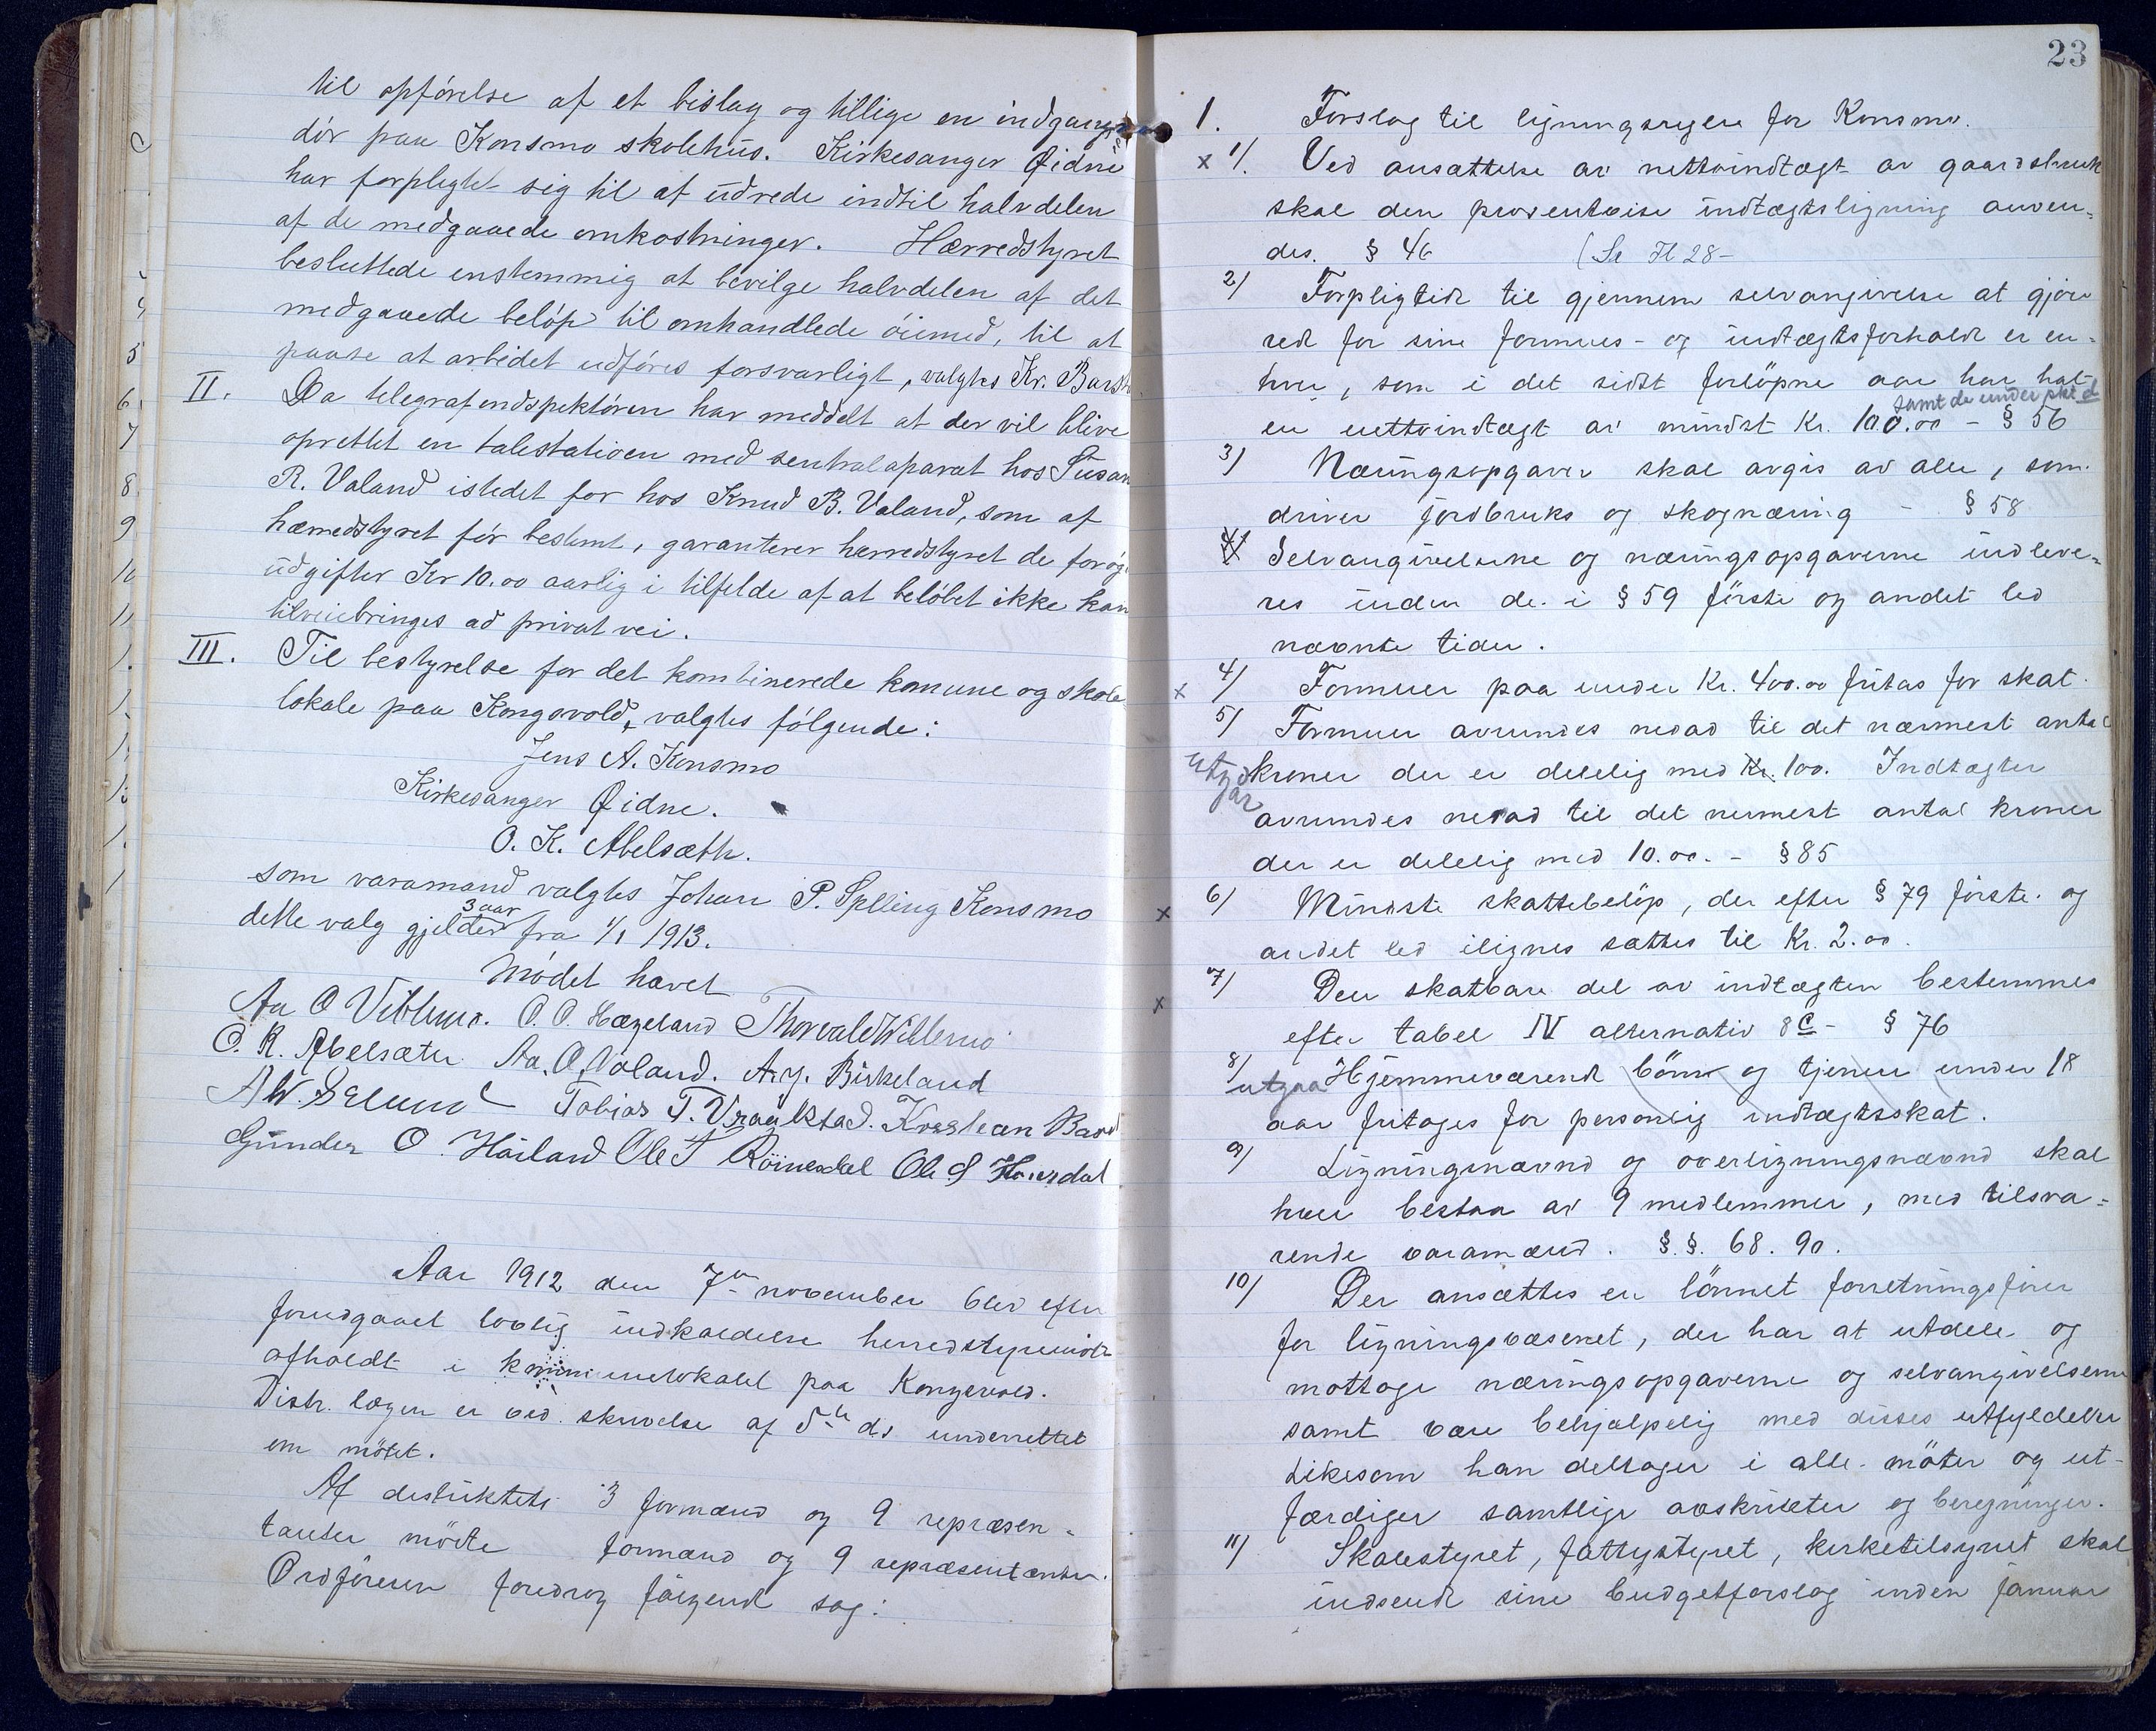 til opförelse af et bislag og tillige en indgangs
dör paa Konsmo skolehus. Kirkesanger Øidne
har forpligtet sig til at udrede indtil halvdelen
af de medgaaede omkostninger. Hærredstyret
besluttede enstemmig at bevilge halvdelen af det
medgaaede belöp til omhandlede öiemed, til at
paase at arbeidet udföres forsvarligt, valgtes Kr.
II. Da telegrafindspektören har meddelt at der vil blive
oprettet en talestatioen med sentralaparat hos Susan
R. Valand istedet for hos Knud B. Valand, som af
hærredstyret för bestemt, garanterer herredstyret de
udgifter Kr 10.00 aarlig i tilfelde af at belöbet ikke kan
tilveiebringes ad privat vei.
III. Til bestyrelse for det kombinerede komune og skole
lokale paa Kongsvold, valgtes fölgende:
Jens A. Konsmo
Kirkesanger Øidne.
O. K. Abelsæth.
som varamand valgtes Johan P. Konsmo
3 aar
dette valg gjelder fra 1/1 1913.
Mödet hævet
Aa O Viblemo. O. O. Hægeland Thorvald Viblemo
O. K. Abelsæter Aa. O. Valand. A. J. Birkeland
A W. Tobias T. Vraalstad. Kristean
Gunder O. Håiland Ole T Röinesdal Ole S
Aar 1912 den 7de november blev efter
forudgaaet lovlig indkaldelse herredstyremöte
afholdt i kommunelokalet paa Kongsvold.
Distr. lægen er ved skrivelse af 5te ds underrettet
om mötet.
Af destriktets 3 formænd og 9 repræsen-
tanter mötte formænd og 9 repræsentanter.
Ordföreren foredrog fölgende sag:
23
1. Forslag til ligningsregler for Konsmo.
x 1/. Ved ansættelse av nettoindtægt av gaardsbruk
skal den prosentvise indtægtsligning anven-
des. § 46 (Se Fl 28-
2/ Forpligtede til gjennem selvangivelse at gjöre
rede for sine formues- og indtægtsforholde er en-
hver, som i det sidst forlöpne aar har hat
samt de under pkt d
en nettoindtægt av mindst Kr. 100.00 - § 56
3/ Næringsopgaver skal avgis av alle, som
driver jordbruks og skognæring - § 58
4/ Selvangivelserne og næringsopgaverne indleve-
res inden de i § 59 förste og andet led
nævnte tider.
x 4/ Formuer paa under Kr. 400.00 fritas for skat.
5/ Formuer avrundes nedad til det nærmest antal
utgår kroner der er delelig med Kr. 100. Indtægter
avrundes nedad til det nermest antal kroner
der er delelig med 10.00. - § 85
x 6/ Mindste skattebelöp, der efter § 79 förste og
andet led ilignes sættes til Kr. 2.00.
x 7/ Den skatbare del av indtægten bestemmes
efter tabel IV alternativ 8 c - § 76
8/ utgaa Hjemmeværende börn og tjenere under 18
aar fritages for personlig indtægtsskat.
9/ Ligningsnævnd og overligningsnævnd skal
hver bestaa av 9 medlemmer, med tilsva-
rende varamænd. §.§. 68. 90.
10/ Der ansættes en lönnet forretningsförer
for ligningsvæsenet, der har at utdele og
mottage næringsopgaverne og selvangivelserne
samt være behjælpelig med disses utfyldelse
Likesom han deltager i alle möter og ut-
færdiger samtlige avskrifter og beregninger.
11/ Skolestyret, fattigstyret, kirketilsynet skal
indsende sine budgetforslag inden januar